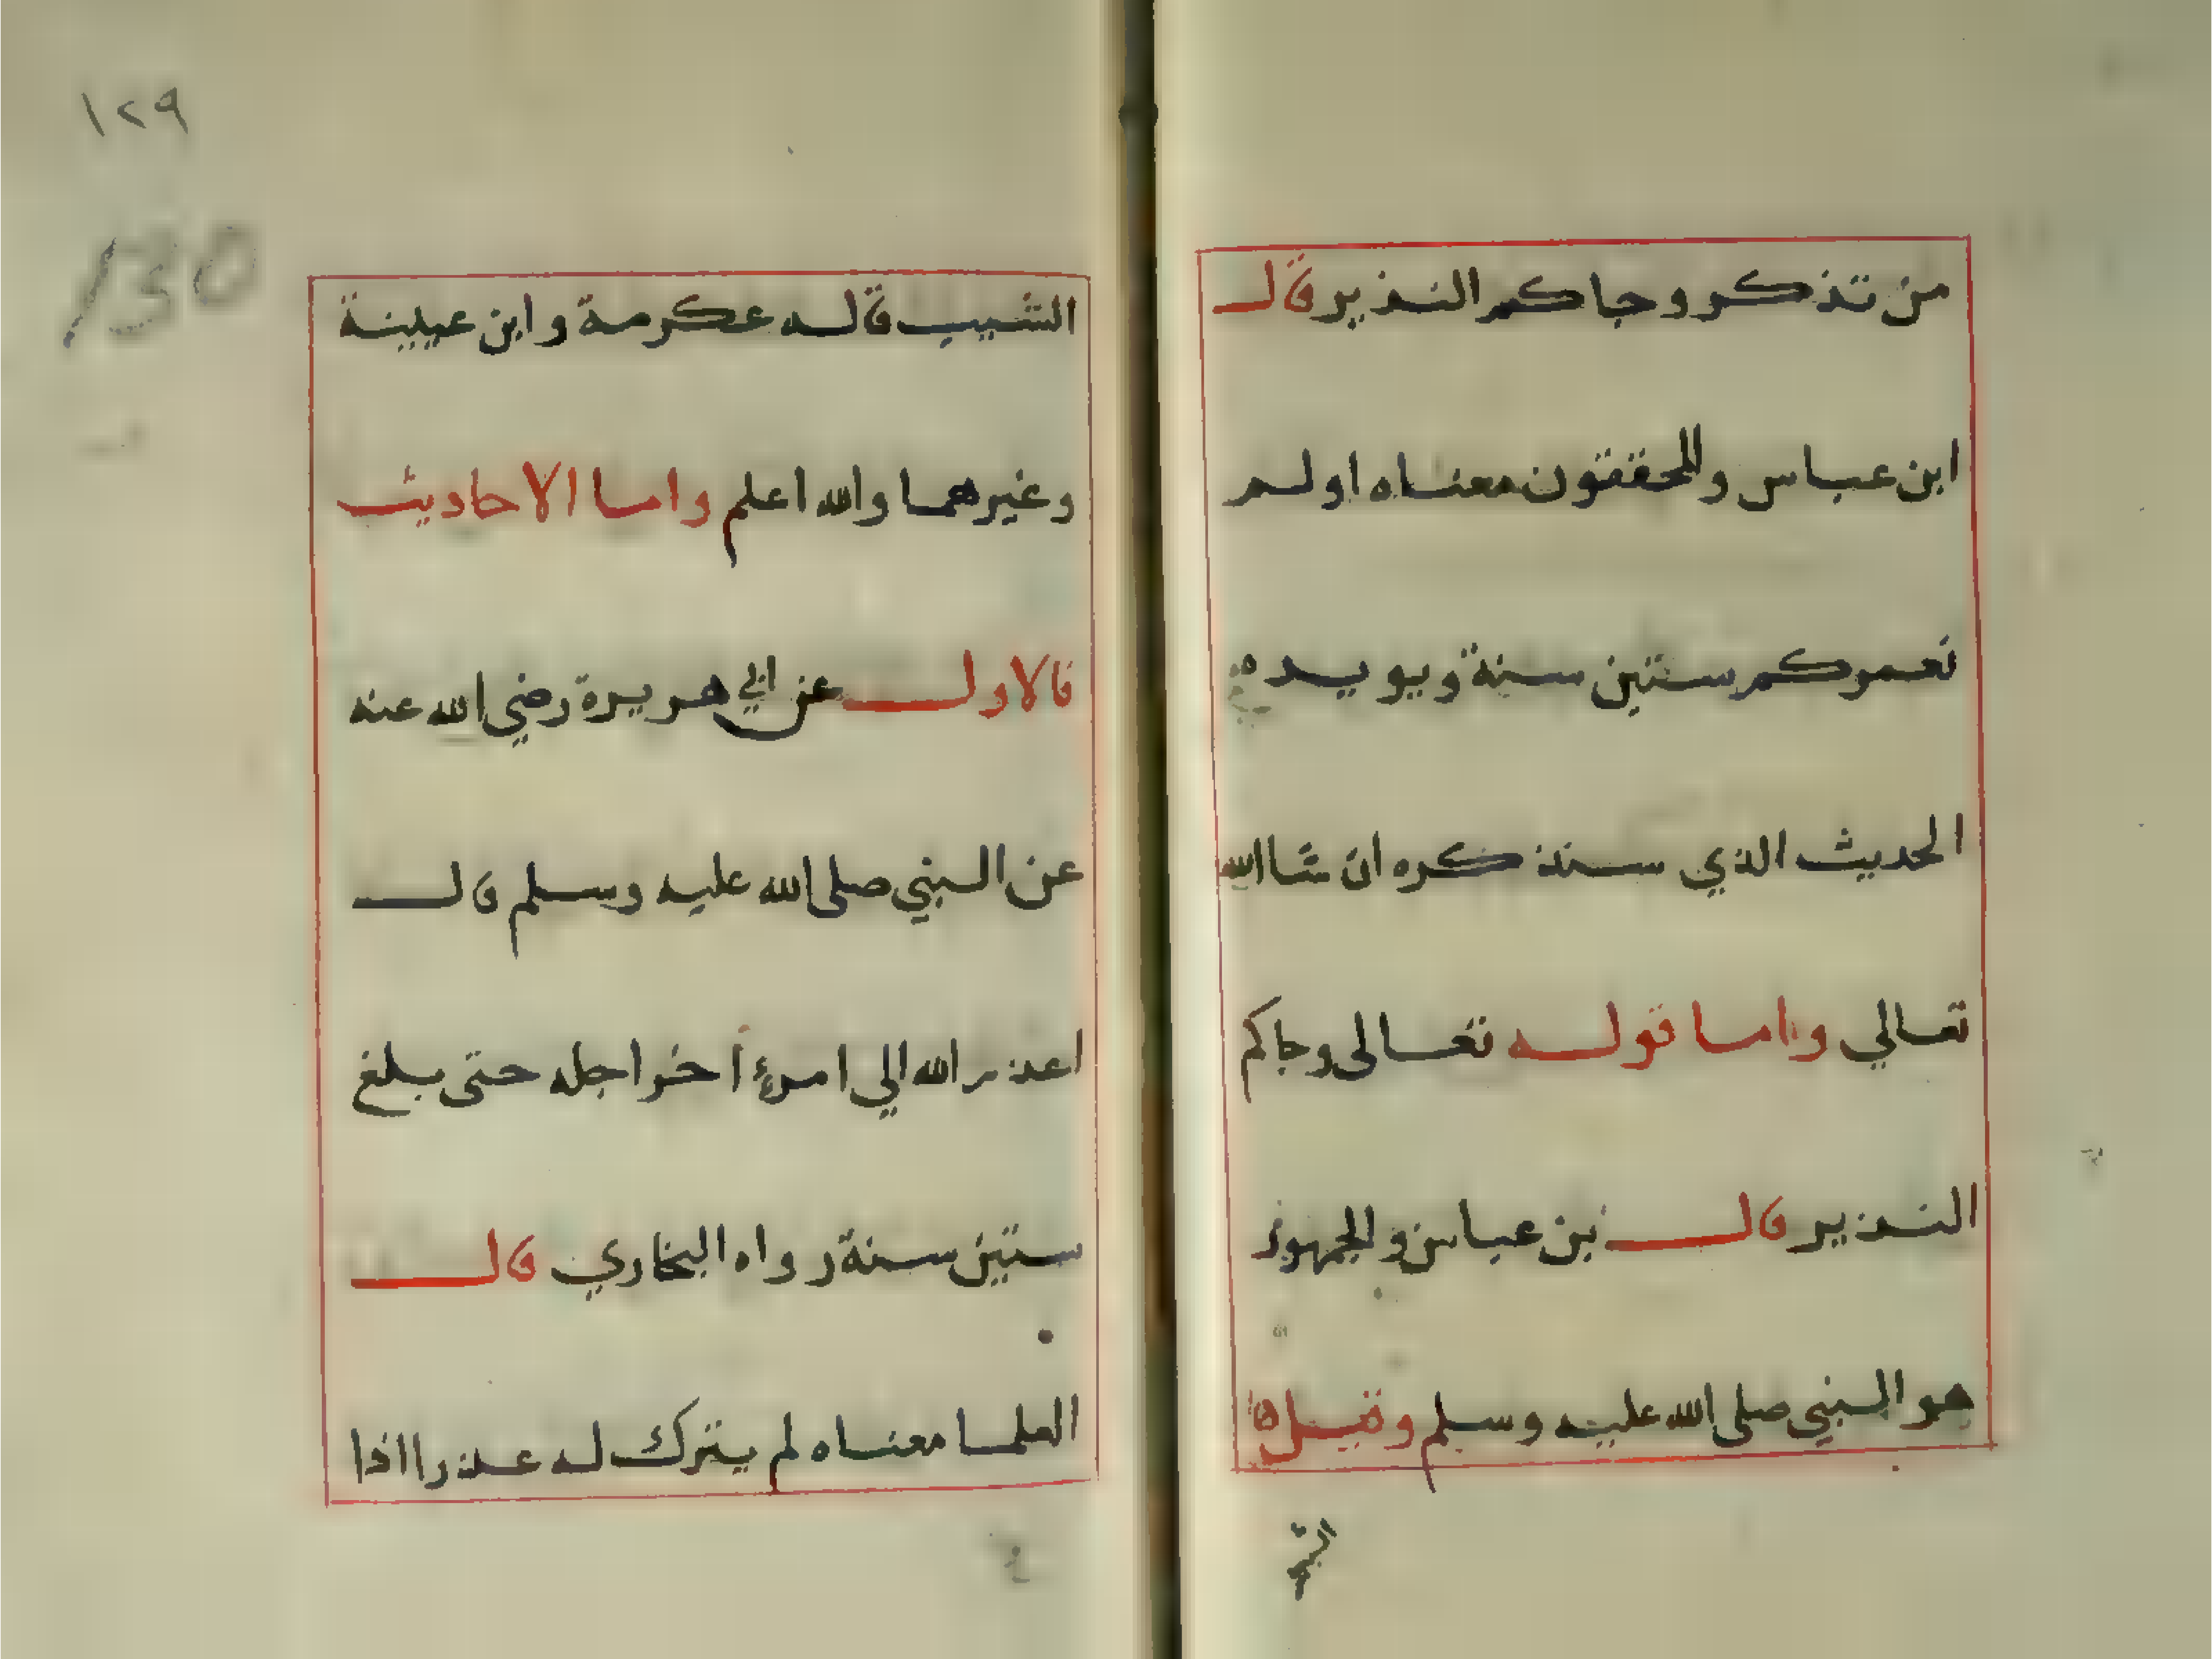 من تذكر وجاكم النذير قال
ابن عباس والمحققون معناه اولم
نعمركم ستين سنة ويويده
الحديث الذي سنذكره ان شا الله
تعالي واما قوله تعالى وجاكم
النذير قال بن عباس والجمهور
هو النبي صلى الله عليه وسلم وقيل
١٢٩
130
الشيب قاله عكرمة وابن عيينة
وغيرهما والله اعلم واما الاحاديث
فالاول عن ابي هريرة رضي الله عنه
عن النبي صلى الله عليه وسلم قال
اعذر الله الي امرئ أخر اجله حتى بلغ
ستين سنة رواه البخاري قال
العلما معناه لم يترك له عذرا اذا